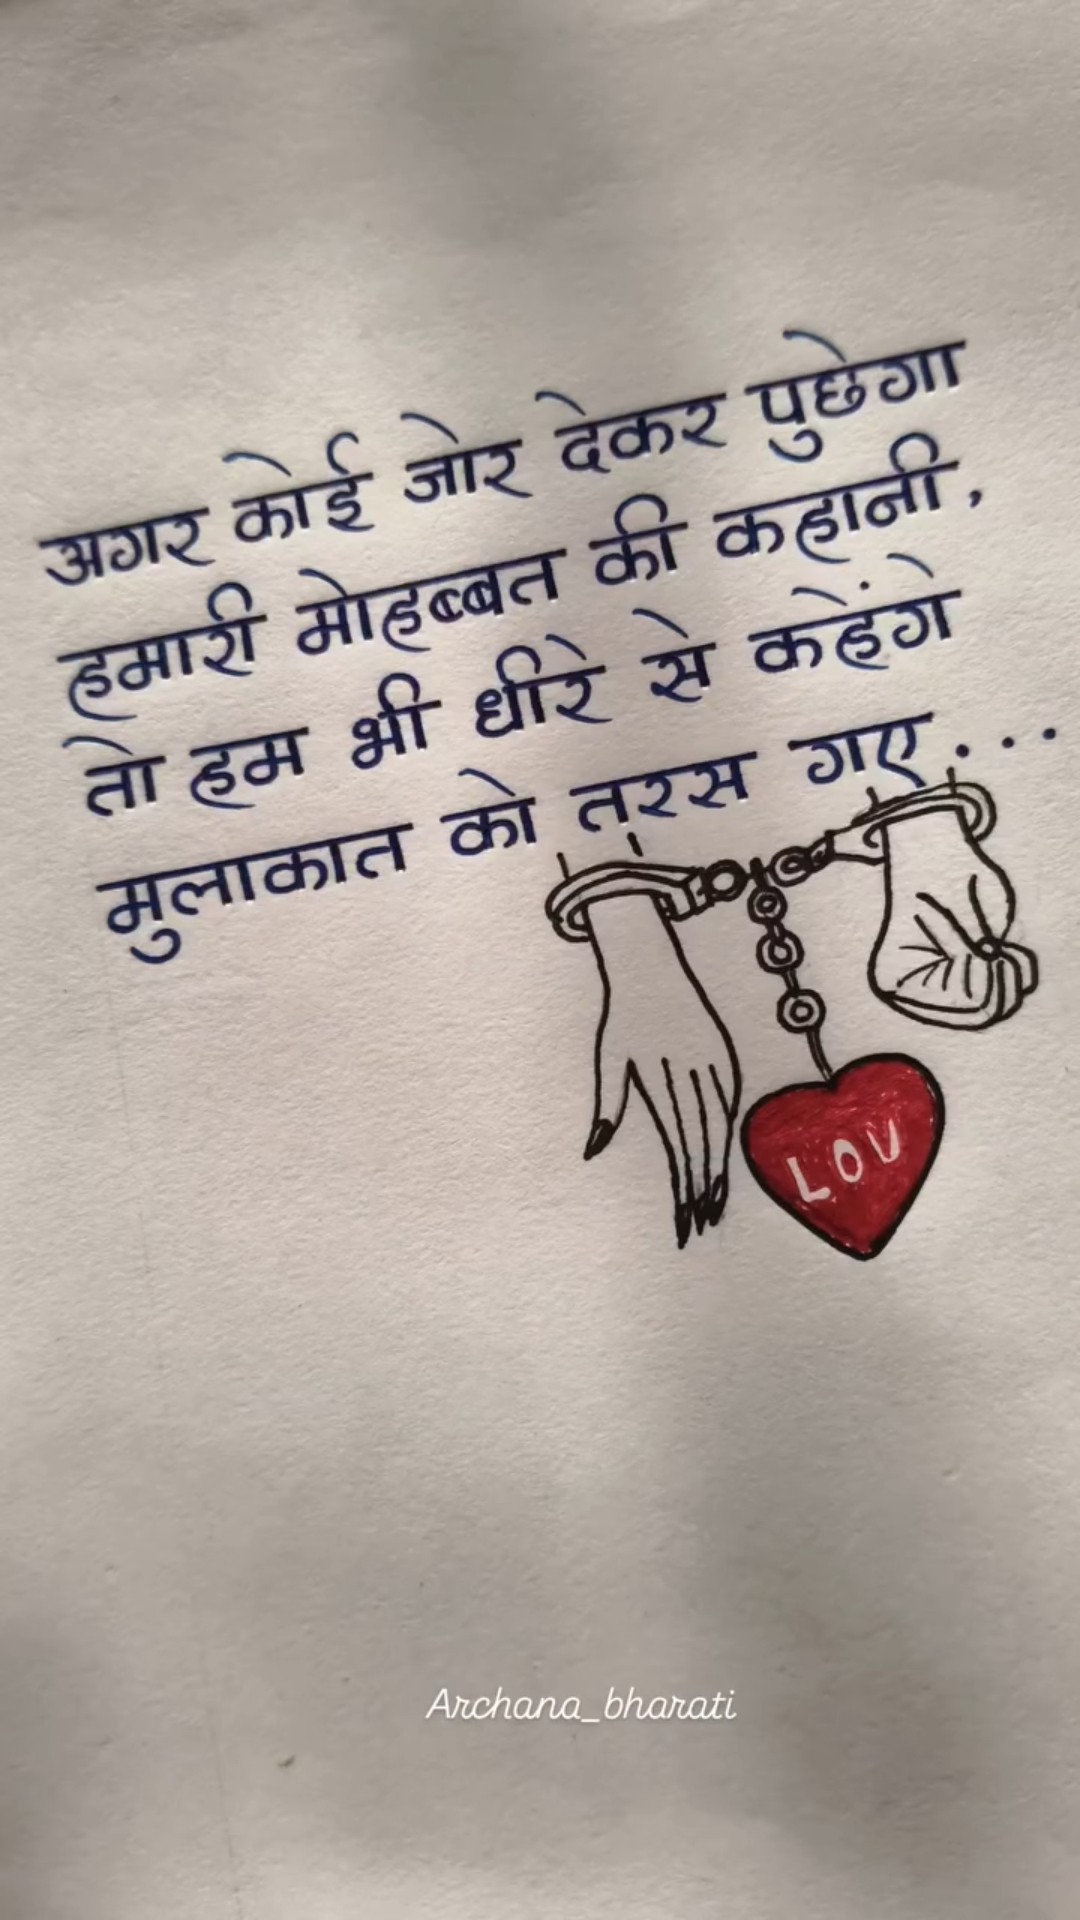 अगर कोई जोर देकर पुछेगा
हमारी मोहब्बत की कहानी,
तो हम भी धीरे से कहेंगे
मुलाकात को तरस गए...
LOV
Archana_bharati